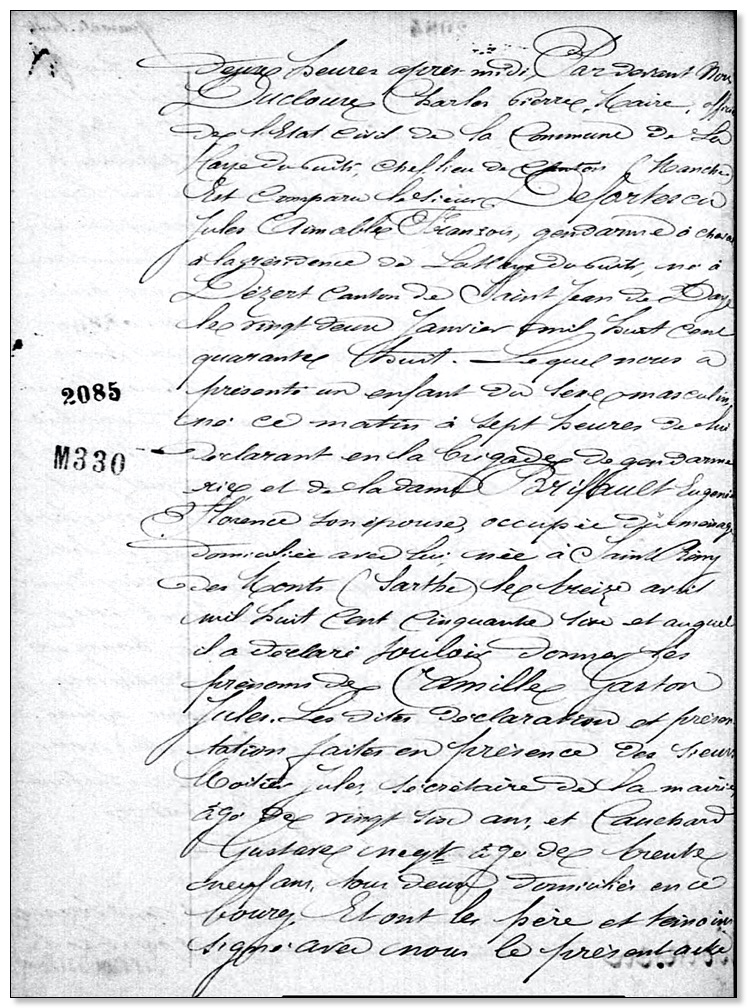 deux heures après midi, Par devant Nous
Ducloux Charles Pierre, Maire, officier
de l'Etat Civil de la Commune de La
Haye du Puits, chef lieu de Canton (Manche)
Est Comparu le Sieur Defortescu
Jules Aimable François, gendarme à cheval
à la résidence de La Haye du Puits, né à
Dézert Canton de Saint Jean de Daye
le vingt deux Janvier mil huit cent
quarante huit. Lequel nous a
présenté un enfant du sexe masculin,
2085
né ce matin à sept heures de lui
déclarant en la brigade de gendarme
M330
rie et de la dame Briffault Eugénie
Florence son épouse, occupée du ménage
domiciliée avec lui, née à Saint Rémy
des Monts (Sarthe) le treize avril
mil huit cent cinquante six et auquel
il a déclaré vouloir donner les
prénoms de Camille Gaston
Jules. Les dites déclaration et présen
tation faites en présence des sieurs
Jules, secrétaire de la mairie,
âgé de vingt six ans, et Cauchard
Gustave négt âgé de trente
neuf ans, tous deux domiciliés en ce
bourg, Et ont les père et témoins
signé avec nous le présent acte